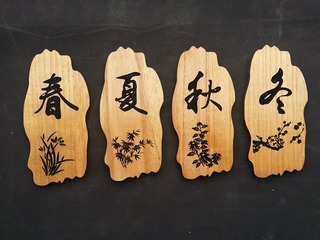 春 夏 秋 冬